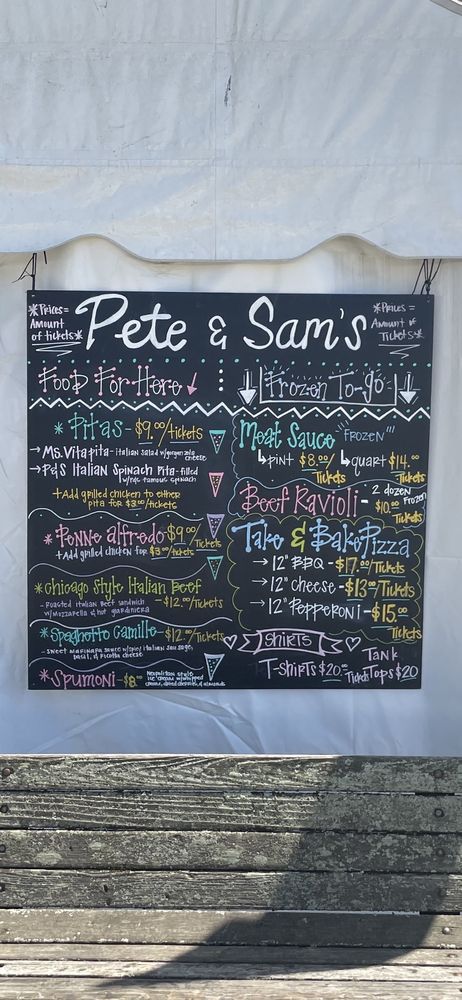 *Prices=
Amount
of tickets*
Pete & Sam's
*Prices =
Amount of
Tickets*
Food For Here
Frozen To-go
*Pitas- $9.00/tickets
→ Ms. Vitapita- Italian salad w/gorgonzola
cheese
→ P&S Italian Spinach Pita- filled
w/P&S famous spinach
+Add grilled chicken to either
pita for $3.00/tickets
*Penne alfredo $9.00/
Tickets
+Add grilled chicken for $3.00/tickets
*Chicago Style Italian Beef
- Roasted Italian Beef sandwich
w/Mozzarella & hot gardinera
-$12.00/Tickets
*Spaghetto Camille-$12.00/Tickets
-sweet marinara sauce w/spicy italian sausage,
basil, & ricotta cheese
*Spumoni-$8.00
Neapolitan style
ice cream w/whipped
cream, dried cherries, & almonds
Meat Sauce "Frozen"
↳pint $8.00/
Tickets
↳quart $14.00
Tickets
Beef Ravioli- 2 dozen
Frozen
$10.00
Tickets
Take & Bake Pizza
→ 12" BBQ -$17.00/Tickets
→ 12" cheese-$13.00/Tickets
→ 12" Pepperoni-$15.00
Tickets
SHIRTS
T-shirts $20.00
Tickets
Tank
Tops $20